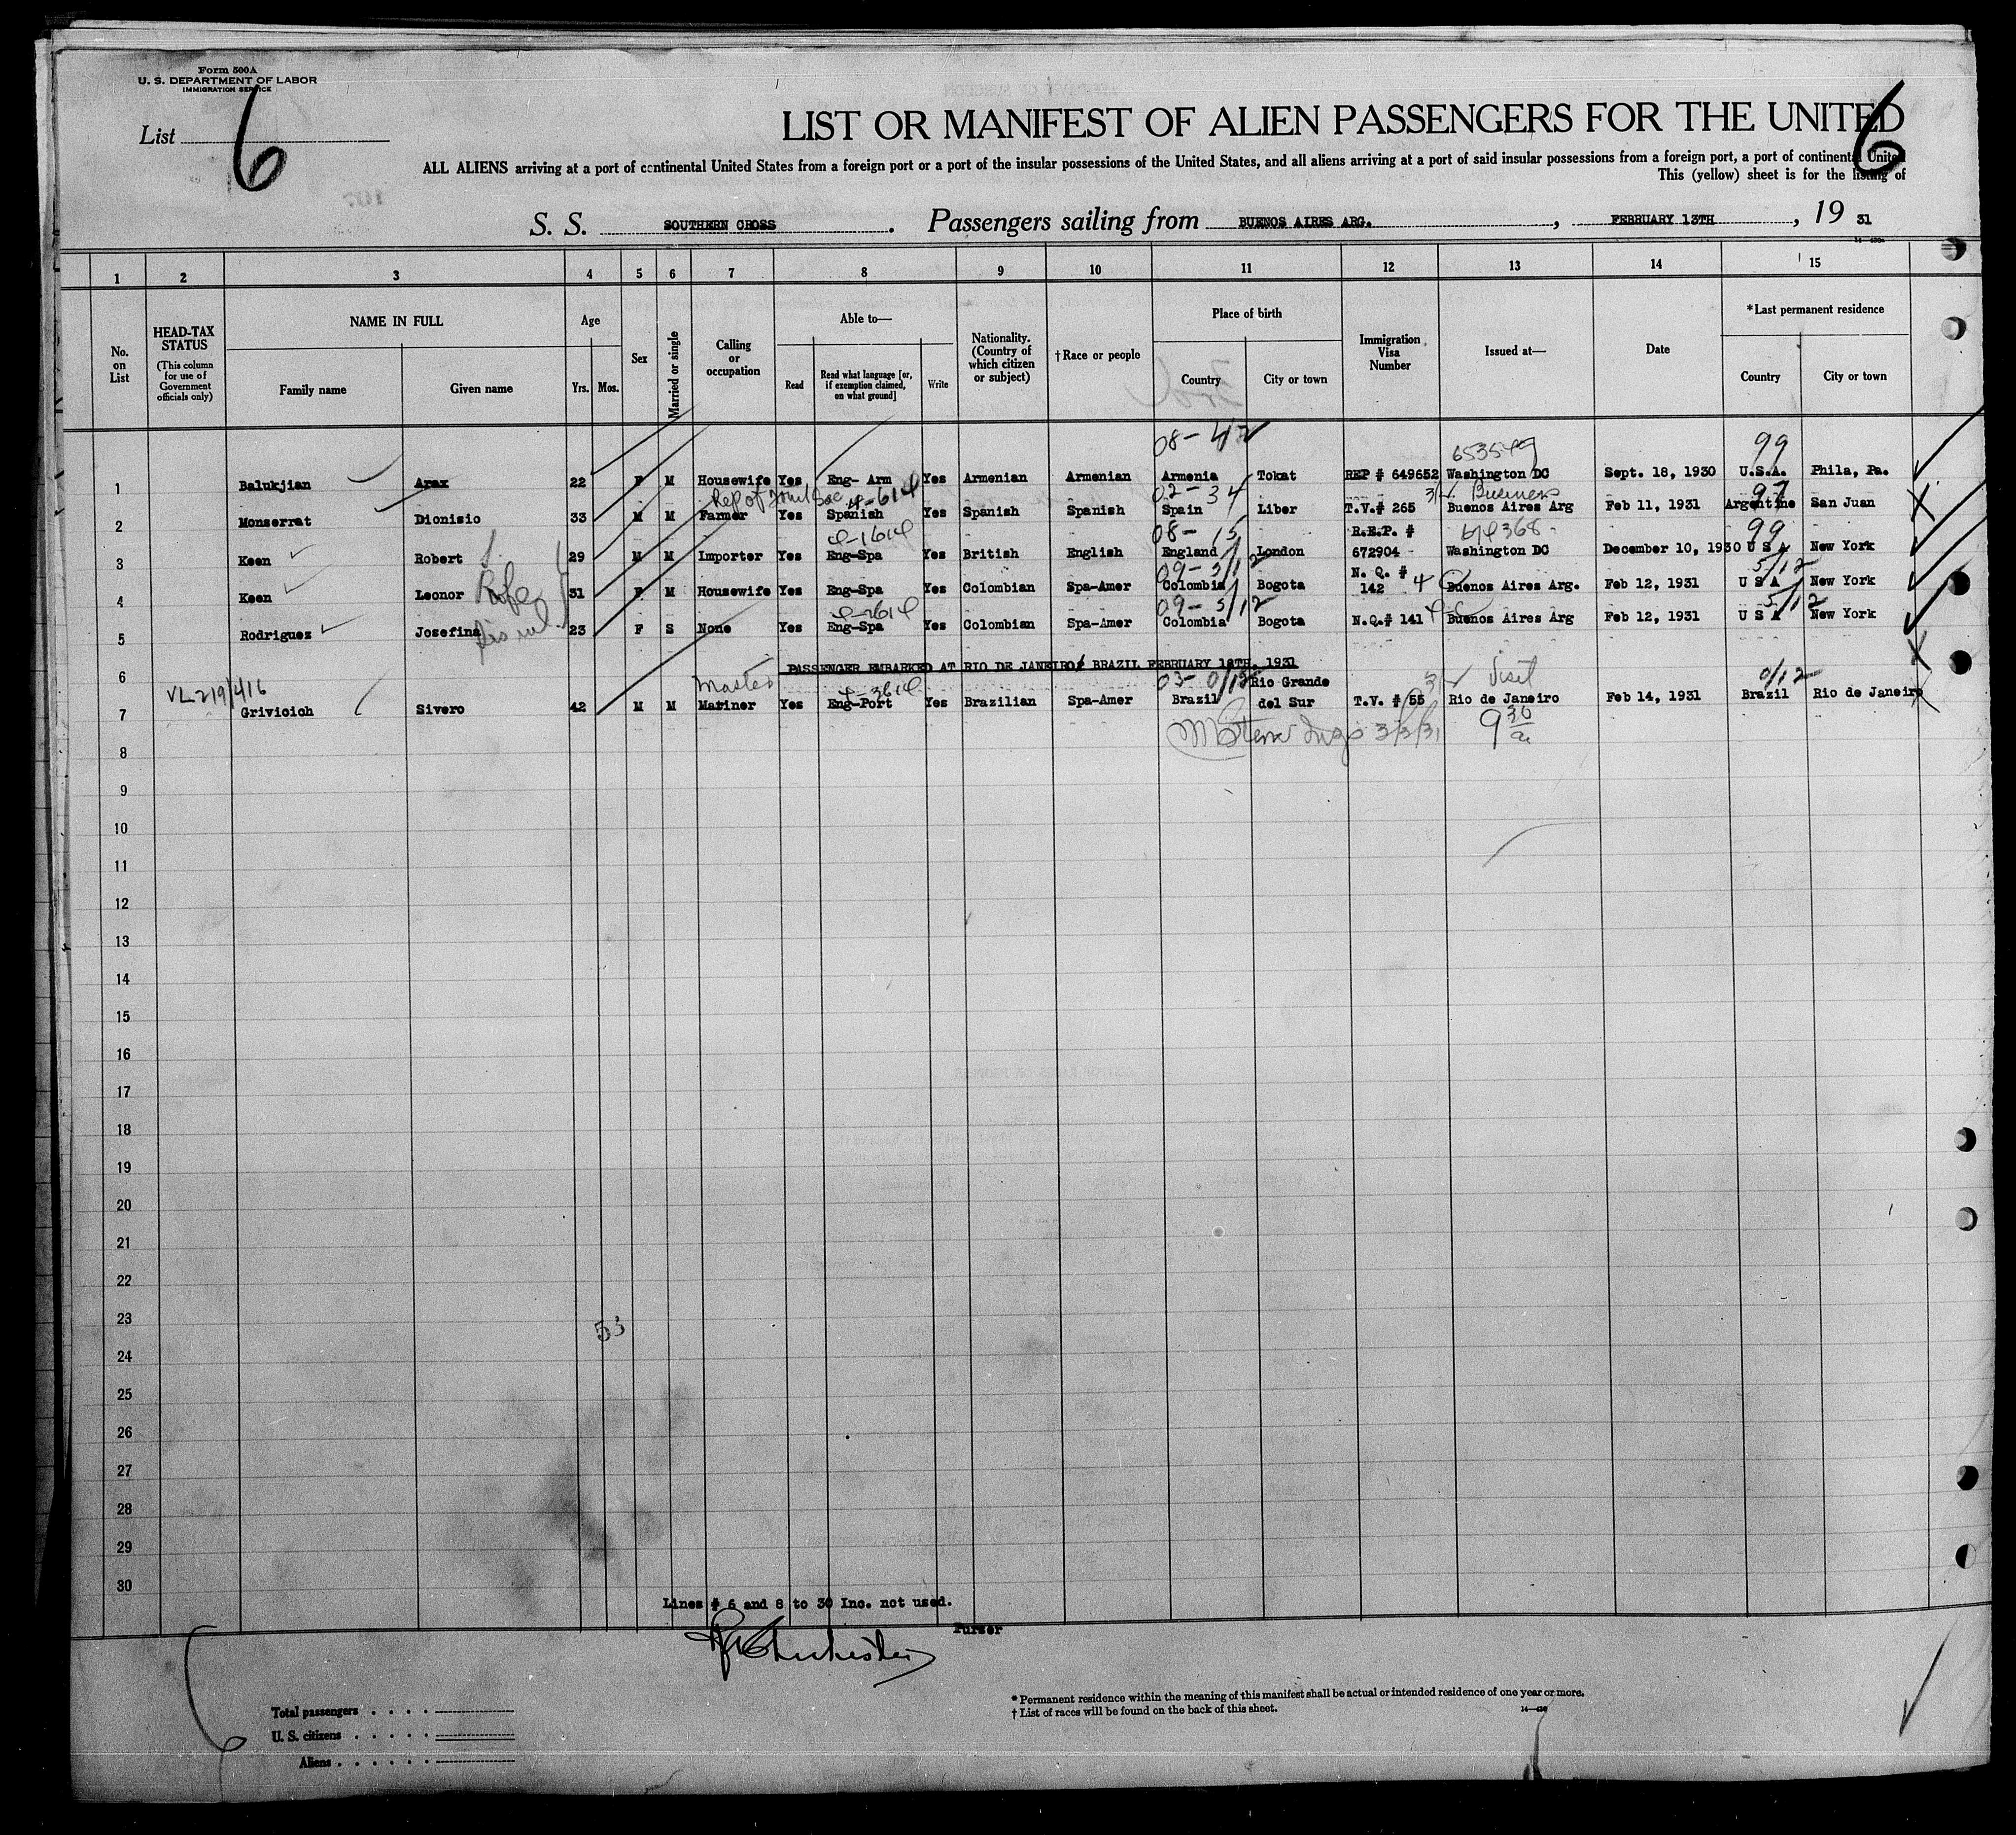 Form 500A
U. S. DEPARTMENT OF LABOR
IMMIGRATION SERVICE
List 6
6
LIST OR MANIFEST OF ALIEN PASSENGERS FOR THE UNITED
ALL ALIENS arriving at a port of continental United States from a foreign port or a port of the insular possessions of the United States, and all aliens arriving at a port of said insular possessions from a foreign port, a port of continental United
This (yellow) sheet is for the listing of
S. S. SOUTHERN CROSS. Passengers sailing from BUENOS AIRES ARG., FEBRUARY 13TH, 19 31
1 2 3 4 5 6 7 8 9 10 11 12 13 14 15
No. on List
HEAD-TAX STATUS
(This column for use of Government officials only)
NAME IN FULL
Family name Given name
Age
Yrs. Mos.
Sex
Married or single
Calling or occupation
Able to—
Read Read what language [or, if exemption claimed, on what ground] Write
Nationality. (Country of which citizen or subject)
†Race or people
Place of birth
Country City or town
Immigration Visa Number
Issued at—
Date
*Last permanent residence
Country City or town
653549 99
1 Balukjian Arax 22 F M Housewife Yes Eng- Arm Yes Armenian Armenian Armenia Tokat REP # 649652 Washington DC Sept. 18, 1930 U.S.A. Phila, Pa.
02-34 Business 97
2 Monserrat Dionisio 33 M M Farmer Yes Spanish Yes Spanish Spanish Spain Liber T.V.# 265 Buenos Aires Arg Feb 11, 1931 Argentine San Juan
08-15 R.E.P. # 99
3 Keen Robert 29 M M Importer Yes Eng-Spa Yes British English England London 672904 Washington DC December 10, 1930 U S A New York
09-5/12 N. Q. # 5/12
4 Keen Leonor 31 F M Housewife Yes Eng-Spa Yes Colombian Spa-Amer Colombia Bogota 142 Buenos Aires Arg. Feb 12, 1931 U S A New York
09-5/12 5/12
5 Rodriguez Josefina 23 F S None Yes Eng-Spa Yes Colombian Spa-Amer Colombia Bogota N.Q.# 141 Buenos Aires Arg Feb 12, 1931 U S A New York
PASSENGER EMBARKED AT RIO DE JANEIRO, BRAZIL FEBRUARY 18TH, 1931
6 Master Rio Grande Visit 0/12
7 Grivicich Sivero 42 M M Mariner Yes Eng-Port Yes Brazilian Spa-Amer Brazil del Sur T.V. # 55 Rio de Janeiro Feb 14, 1931 Brazil Rio de Janeiro
3/3/31
8
9
10
11
12
13
14
15
16
17
18
19
20
21
22
23
53
24
25
26
27
28
29
30
Lines # 6 and 8 to 30 Inc. not used.
Purser
Total passengers
U. S. citizens
Aliens
*Permanent residence within the meaning of this manifest shall be actual or intended residence of one year or more.
†List of races will be found on the back of this sheet.